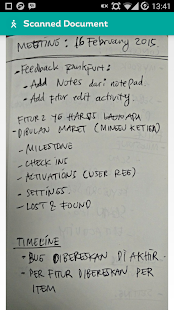 13:41
Scanned Document
MEETING : 16 February 2015.
- Feedback Frankfurt :
- Add Notes dari notepad
- Add Fitur edit activity.
FITUR2 YG HARUS
DIBULAN MARET (MINGGU KETIGA)
- MILESTONE
- CHECK INS
- ACTIVATIONS (USER REG)
- SETTINGS
- LOST & FOUND
TIMELINE
- BUG DIBERESKAN DI AKHIR
- PER FITUR DIBERESKAN PER
ITEM